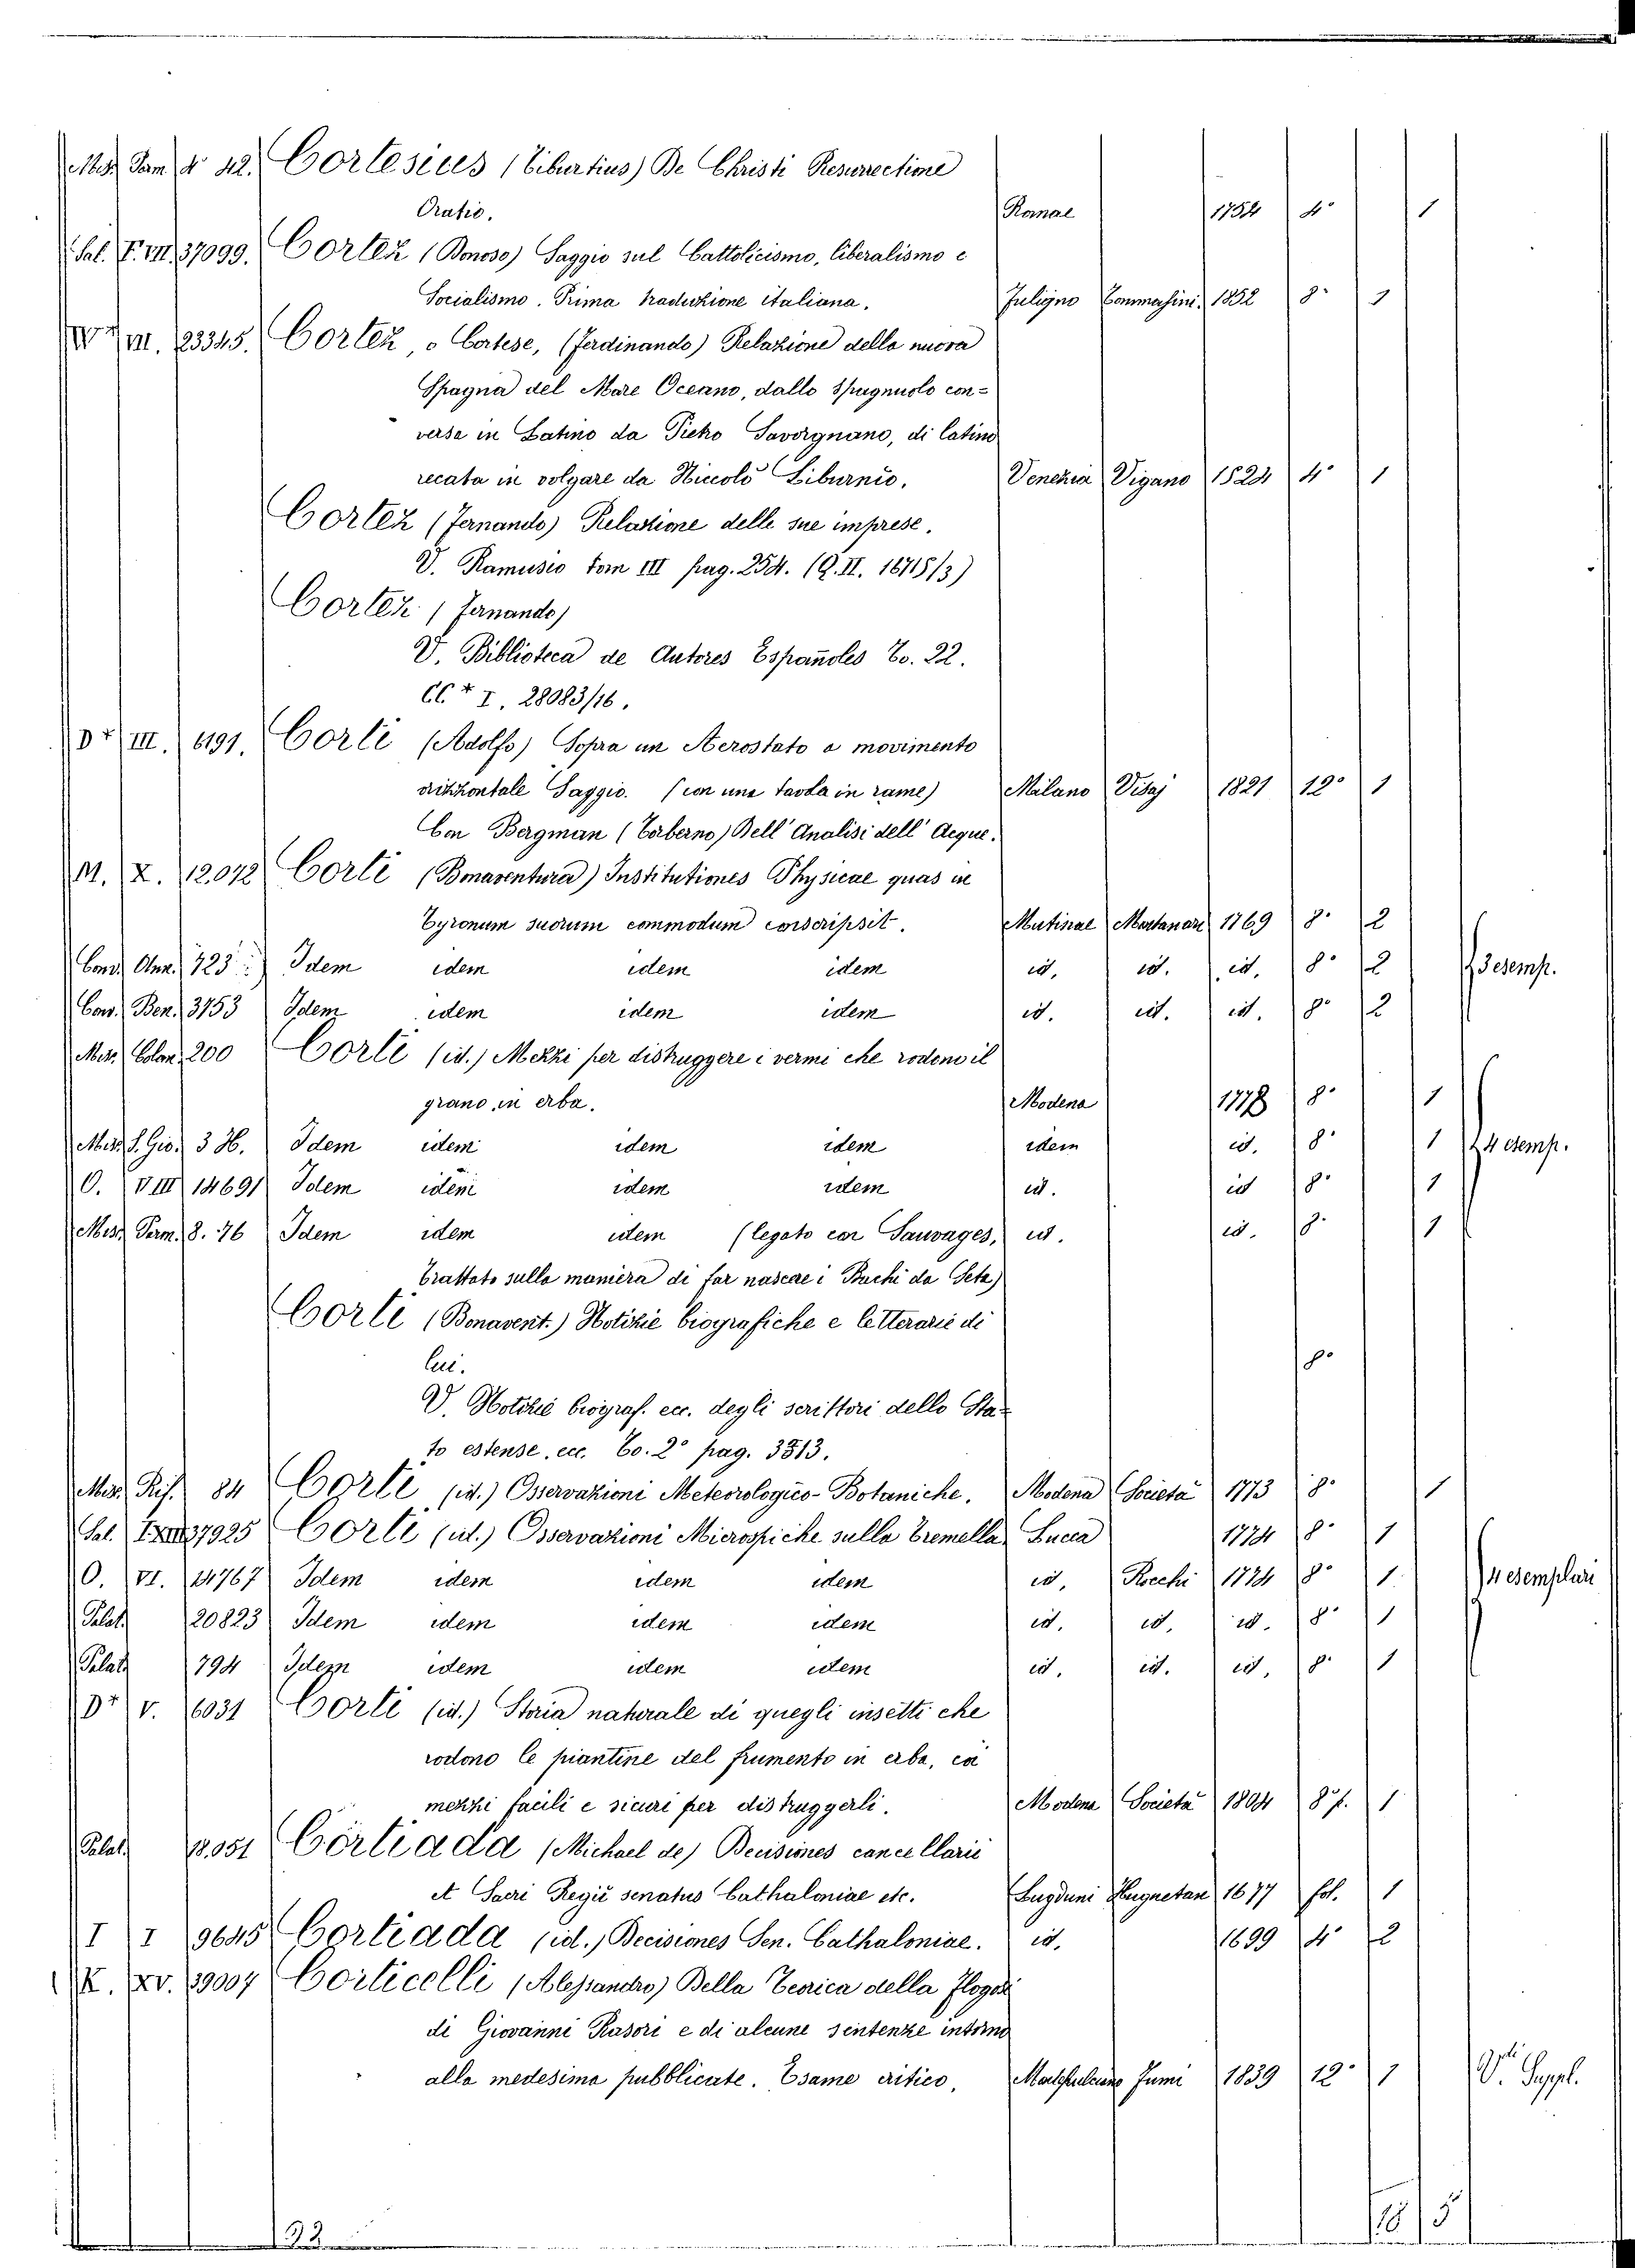 Misc. Fam. 4° 42. Cortesius (Tibertius) De Christi Resurrectione
Oratio. Romae 1754 4° 1
Sal. F. VII. 37099. Cortez (Donoso) Saggio sul Cattolicismo, liberalismo e
Socialismo. Prima traduzione italiana. Fuligno Tommasini 1852 8° 1
VII. 23345. Cortez, o Cortese, (Ferdinando) Relazione della nuova
Spagna del Mare Oceano, dallo Spagnuolo con=
versa in Latino da Pietro Savorgnano, di latino
recata in volgare da Niccolò Liburnio. Venezia Vigano 1524 4° 1
Cortez (Fernando) Relazione delle sue imprese.
V. Ramusio tom III pag. 254. (Q. II. 16715/3)
Cortez (Fernando)
V. Biblioteca de Autores Españoles To. 22.
CC* I. 28083/16.
D* III. 6191. Corti (Adolfo) Sopra un Aerostato a movimento
orizzontale Saggio. (con una tavola in rame) Milano Visaj 1821 12° 1
Con Bergman (Torberno) Dell' Analisi dell' Acque.
M. X. 12072 Corti (Bonaventura) Institutiones Physicae quas in
Tyronum suorum commodum conscripsit. Mutinae Montanari 1769 8° 2
Cons. Ann. 725 Idem idem idem idem id. id. id. 8° 2 3 esemp.
Cons. Ben. 3153 Idem idem idem idem id. id. id. 8° 2
Misc. Colon. 200 Corti (id.) Mezzi per distruggere i vermi che rodono il
grano in erba. Modena 1778 8° 1
Misc. S. Gio. 3 36. Idem idem idem idem idem id. 8° 1 4 esemp.
O. VIII 14691 Idem idem idem idem id. id 8° 1
Misc. Ferm. 8. 76 Idem idem idem (legato con Sauvages, id. id. 8° 1
Trattato sulla maniera di far nascere i Bachi da Seta)
Corti (Bonavent.) Notizie biografiche e letterarie di
lui. 8°
V. Notizie biograf. ecc. degli scrittori dello Sta=
to estense, ecc. To. 2° pag. 3513.
Misc. Rif. 84 Corti (id.) Osservazioni Meteorologico-Botaniche. Modena Società 1773 8° 1
Sal. 37925 Corti (id.) Osservazioni Microspiche sulla Tremella Lucca 1774 8° 1
O. VI. 14767 Idem idem idem idem id. Rocchi 1774 8° 1 4 esemplari
Palat. 20823 Idem idem idem idem id. id. id. 8° 1
Palat. 794 Idem idem idem idem id. id. id. 8° 1
D* V. 6031 Corti (id.) Storia naturale di quegli insetti che
rodono le piantine del frumento in erba, co'
mezzi facili e sicuri per distruggerli. Modena Società 1804 8° f. 1
Palat. 18.051 Cortiada (Michael de) Decisiones cancellarii
et Sacri Regii senatus Cathaloniae etc. Lugduni Hugnetan 1677 fol. 1
I I 9645 Cortiada (id.) Decisiones Sen. Cathaloniae. id. 1699 4° 2
K. XV. 39007 Corticelli (Alessandro) Della Teorica della Flogosi
di Giovanni Rasori e di alcune sentenze intorno
alla medesima pubblicate. Esame critico, Fumi 1839 12° 1 V. Suppl.